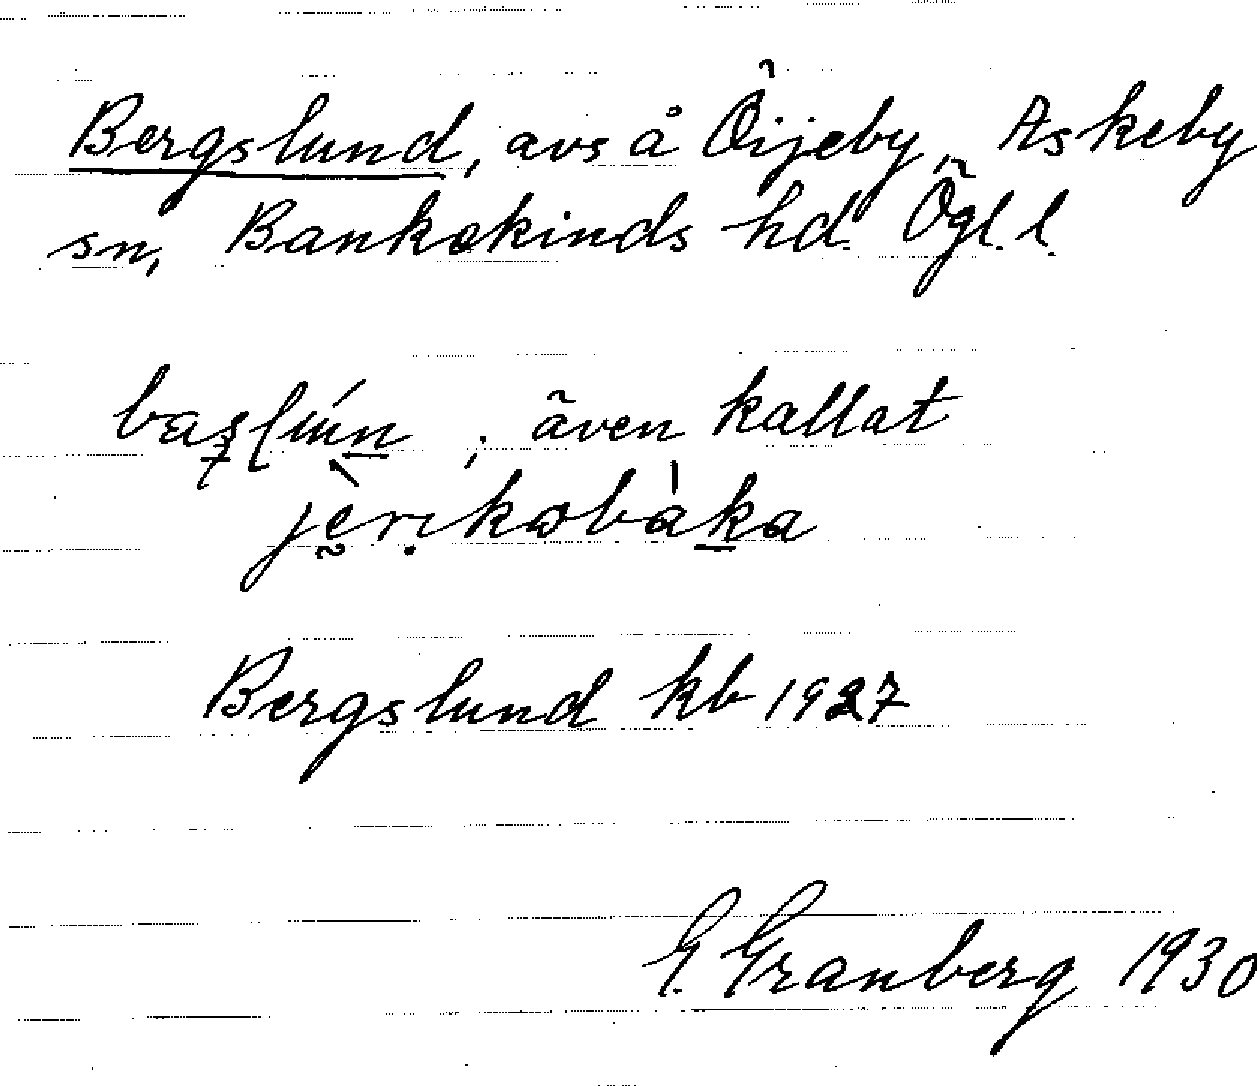 Bergslund, avs å Öijeby, Askeby
sn, Bankekinds hd. Ögl. l.
även kallat
Bergslund kb 1927
G. Granberg 1930